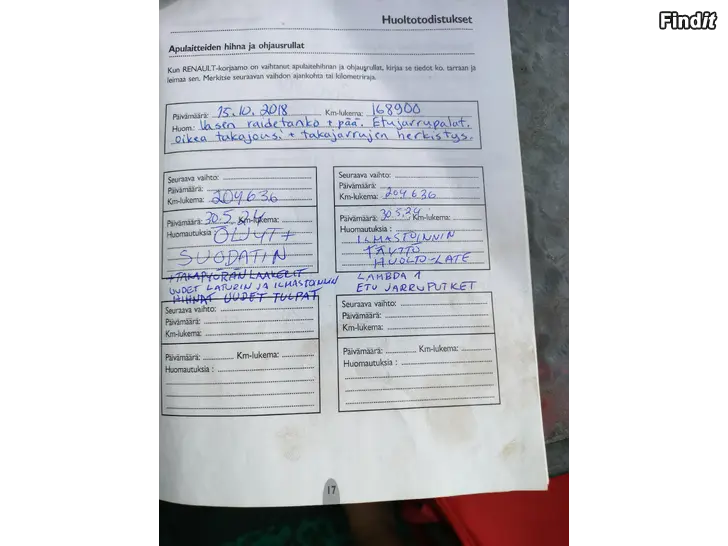 Findit
Huoltotodistukset
Apulaitteiden hihna ja ohjausrullat
Kun RENAULT-korjaamo on vaihtanut apulaitehihnan ja ohjausrullat, kirjaa se tiedot ko. tarraan ja
leimaa sen. Merkitse seuraavan vaihdon ajankohta tai kilometriraja.
Päivämäärä: 15.10.2018 Km-lukema: 168900
Huom: Vasen raidetanko + pää. Etujarrupalat.
oikea takajousi + takajarrujen herkistys.
Seuraava vaihto:
Päivämäärä:
Km-lukema: 204636
Päivämäärä: 30.5.24 Km-lukema:
Huomautuksia ÖLJYT +
SUODATIN
+TAKAPYÖRÄN LAAKERIT
UUDET LATURIN JA ILMASTOINNIN
HIHNAT UUDET TULPAT
Seuraava vaihto:
Päivämäärä:
Km-lukema: 204636
Päivämäärä: 30.5.24 Km-lukema:
Huomautuksia :
ILMASTOINNIN
TÄYTTÖ
HUOLTO-LATE
LAMBDA 1
ETU JARRUPUTKET
Seuraava vaihto:
Päivämäärä:
Km-lukema:
Päivämäärä: Km-lukema:
Huomautuksia :
Seuraava vaihto:
Päivämäärä:
Km-lukema:
Päivämäärä: Km-lukema:
Huomautuksia :
17